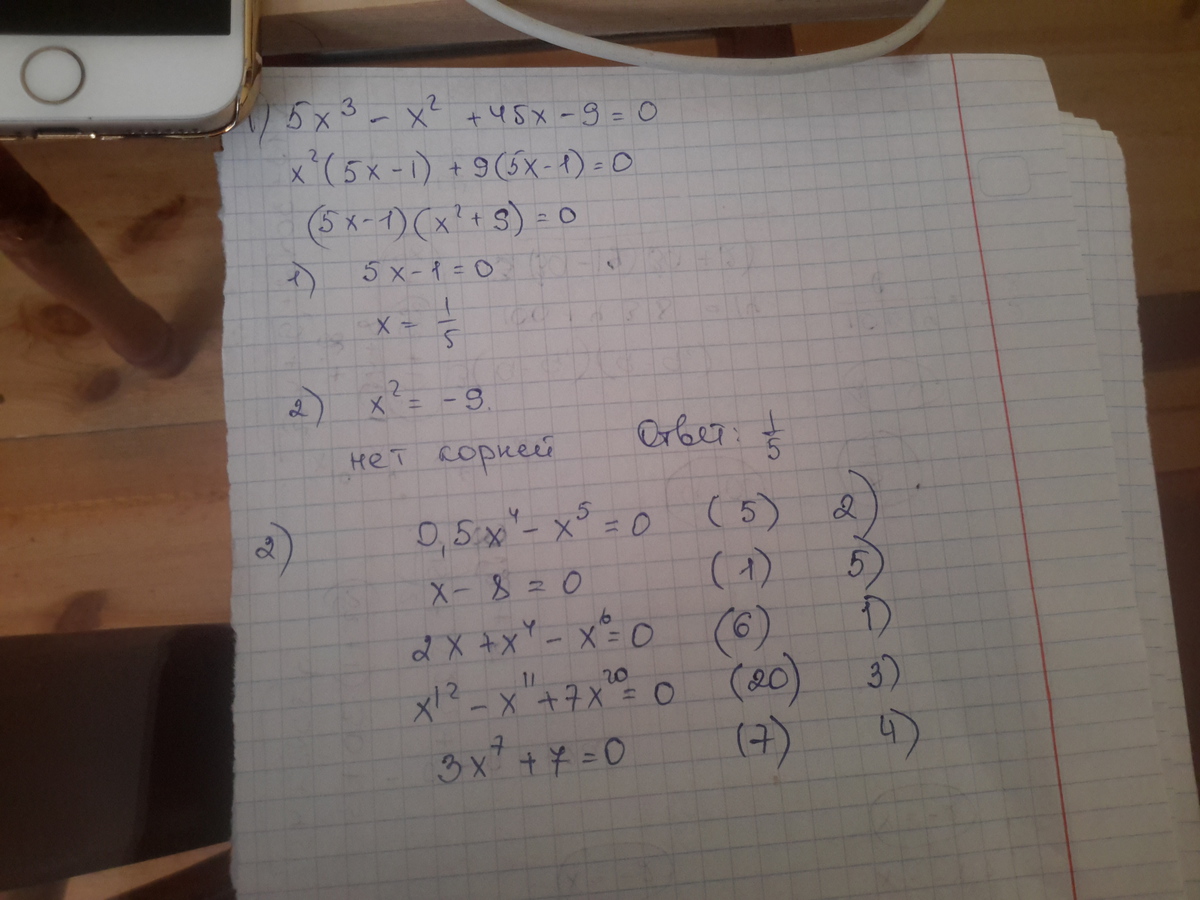 1) 5x³ - x² + 45x - 9 = 0
x²(5x - 1) + 9(5x - 1) = 0
(5x - 1)(x² + 9) = 0
1) 5x - 1 = 0
x = 1/5
2) x² = -9.
нет корней Ответ: 1/5
2) 0,5x⁴ - x⁵ = 0 (5) 2)
x - 8 = 0 (1) 5)
2x + x⁴ - x⁶ = 0 (6) 1)
x¹² - x¹¹ + 7x²⁰ = 0 (20) 3)
3x⁷ + 7 = 0 (7) 4)